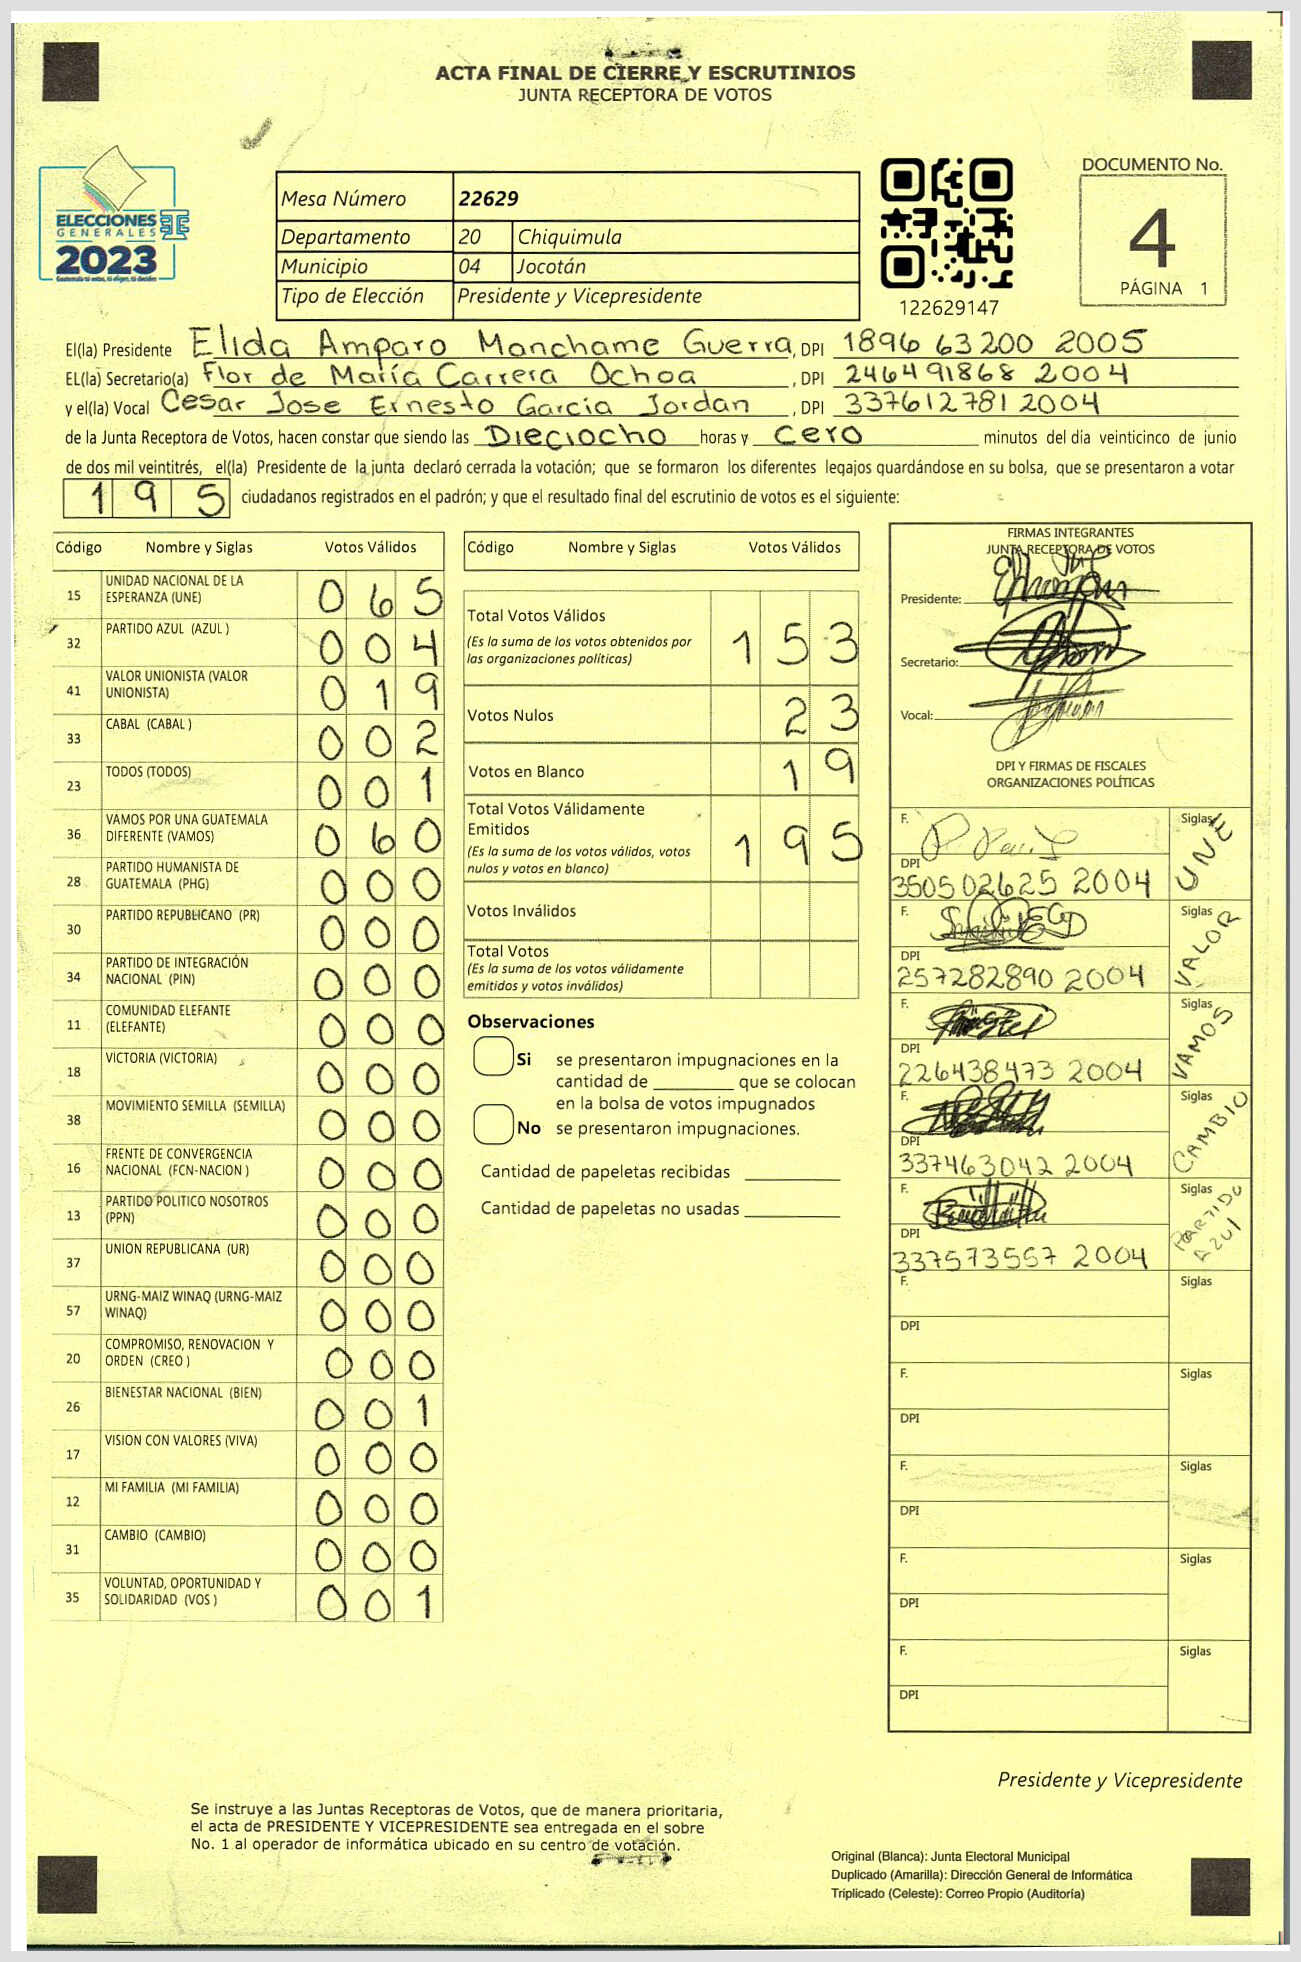 ACTA FINAL DE CIERRE Y ESCRUTINIOS
JUNTA RECEPTORA DE VOTOS
ELECCIONES
GENERALES
2023
Mesa Número 22629
Departamento 20 Chiquimula
Municipio 04 Jocotán
Tipo de Elección Presidente y Vicepresidente
122629147
DOCUMENTO No.
4
PÁGINA 1
El(la) Presidente Elida Amparo Manchame Guerra, DPI 1896 63200 2005
EL(la) Secretario(a) Flor de María Carrera Ochoa, DPI 246491868 2004
y el(la) Vocal Cesar Jose Ernesto Garcia Jordan, DPI 337612781 2004
de la Junta Receptora de Votos, hacen constar que siendo las Dieciocho horas y Cero minutos del día veinticinco de junio
de dos mil veintitrés, el(la) Presidente de la junta declaró cerrada la votación; que se formaron los diferentes legajos guardándose en su bolsa, que se presentaron a votar
195 ciudadanos registrados en el padrón; y que el resultado final del escrutinio de votos es el siguiente:
Código Nombre y Siglas Votos Válidos
15 UNIDAD NACIONAL DE LA ESPERANZA (UNE) 065
32 PARTIDO AZUL (AZUL ) 004
41 VALOR UNIONISTA (VALOR UNIONISTA) 019
33 CABAL (CABAL ) 002
23 TODOS (TODOS) 001
36 VAMOS POR UNA GUATEMALA DIFERENTE (VAMOS) 060
28 PARTIDO HUMANISTA DE GUATEMALA (PHG) 000
30 PARTIDO REPUBLICANO (PR) 000
34 PARTIDO DE INTEGRACIÓN NACIONAL (PIN) 000
11 COMUNIDAD ELEFANTE (ELEFANTE) 000
18 VICTORIA (VICTORIA) 000
38 MOVIMIENTO SEMILLA (SEMILLA) 000
16 FRENTE DE CONVERGENCIA NACIONAL (FCN-NACION ) 000
13 PARTIDO POLITICO NOSOTROS (PPN) 000
37 UNION REPUBLICANA (UR) 000
57 URNG-MAIZ WINAQ (URNG-MAIZ WINAQ) 000
20 COMPROMISO, RENOVACION Y ORDEN (CREO ) 000
26 BIENESTAR NACIONAL (BIEN) 001
17 VISION CON VALORES (VIVA) 000
12 MI FAMILIA (MI FAMILIA) 000
31 CAMBIO (CAMBIO) 000
35 VOLUNTAD, OPORTUNIDAD Y SOLIDARIDAD (VOS ) 001
Código Nombre y Siglas Votos Válidos
Total Votos Válidos 153
(Es la suma de los votos obtenidos por
las organizaciones políticas)
Votos Nulos 23
Votos en Blanco 19
Total Votos Válidamente
Emitidos 195
(Es la suma de los votos válidos, votos
nulos y votos en blanco)
Votos Inválidos
Total Votos
(Es la suma de los votos válidamente
emitidos y votos inválidos)
Observaciones
Si se presentaron impugnaciones en la
cantidad de ________ que se colocan
en la bolsa de votos impugnados
No se presentaron impugnaciones.
Cantidad de papeletas recibidas
Cantidad de papeletas no usadas
FIRMAS INTEGRANTES
JUNTA RECEPTORA DE VOTOS
Presidente:
Secretario:
Vocal:
DPI Y FIRMAS DE FISCALES
ORGANIZACIONES POLÍTICAS
F. Siglas UNE
DPI 350502625 2004
F. Siglas VALOR
DPI 257282890 2004
F. Siglas VAMOS
DPI 226438473 2004
F. Siglas CAMBIO
DPI 337463042 2004
F. Siglas PARTIDO AZUL
DPI 337573557 2004
F. Siglas
DPI
F. Siglas
DPI
F. Siglas
DPI
F. Siglas
DPI
F. Siglas
DPI
Presidente y Vicepresidente
Se instruye a las Juntas Receptoras de Votos, que de manera prioritaria,
el acta de PRESIDENTE Y VICEPRESIDENTE sea entregada en el sobre
No. 1 al operador de informática ubicado en su centro de votación.
Original (Blanca): Junta Electoral Municipal
Duplicado (Amarilla): Dirección General de Informática
Triplicado (Celeste): Correo Propio (Auditoría)